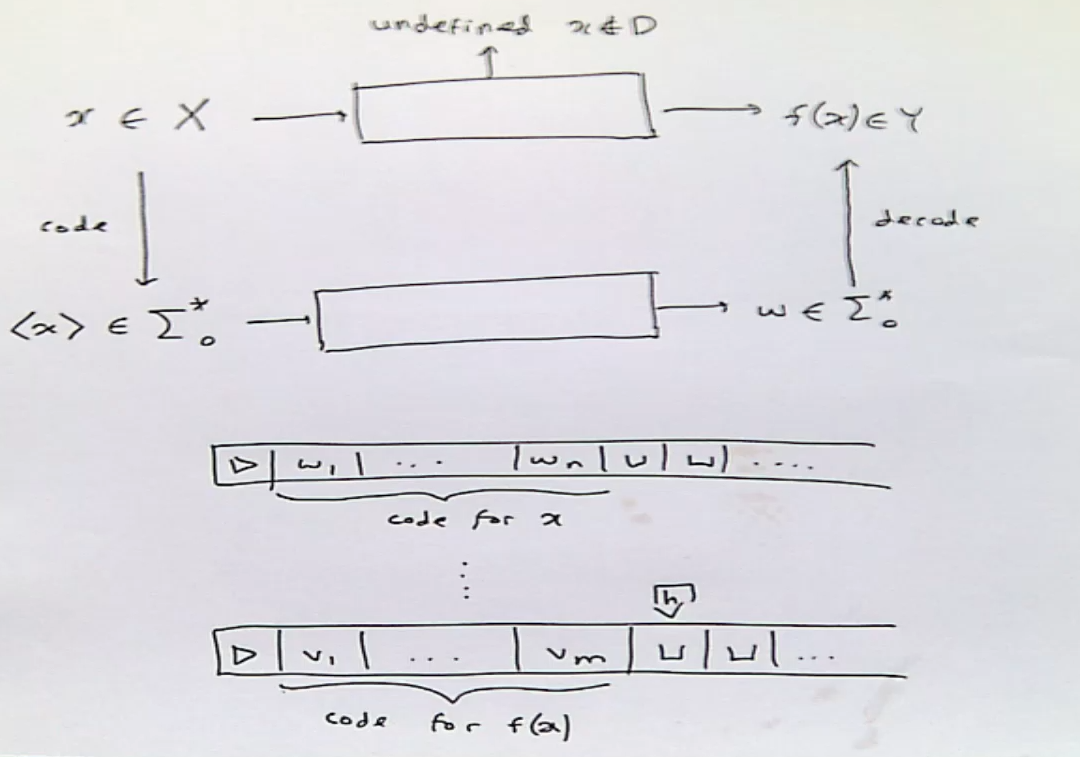 undefined x ∉ D
x ∈ X → → f(x) ∈ Y
code decode
⟨x⟩ ∈ Σ₀* → → w ∈ Σ₀*
▷ w₁ ... wₙ ⊔ ⊔ ....
code for x
h
▷ v₁ ... vₘ ⊔ ⊔ ...
code for f(x)